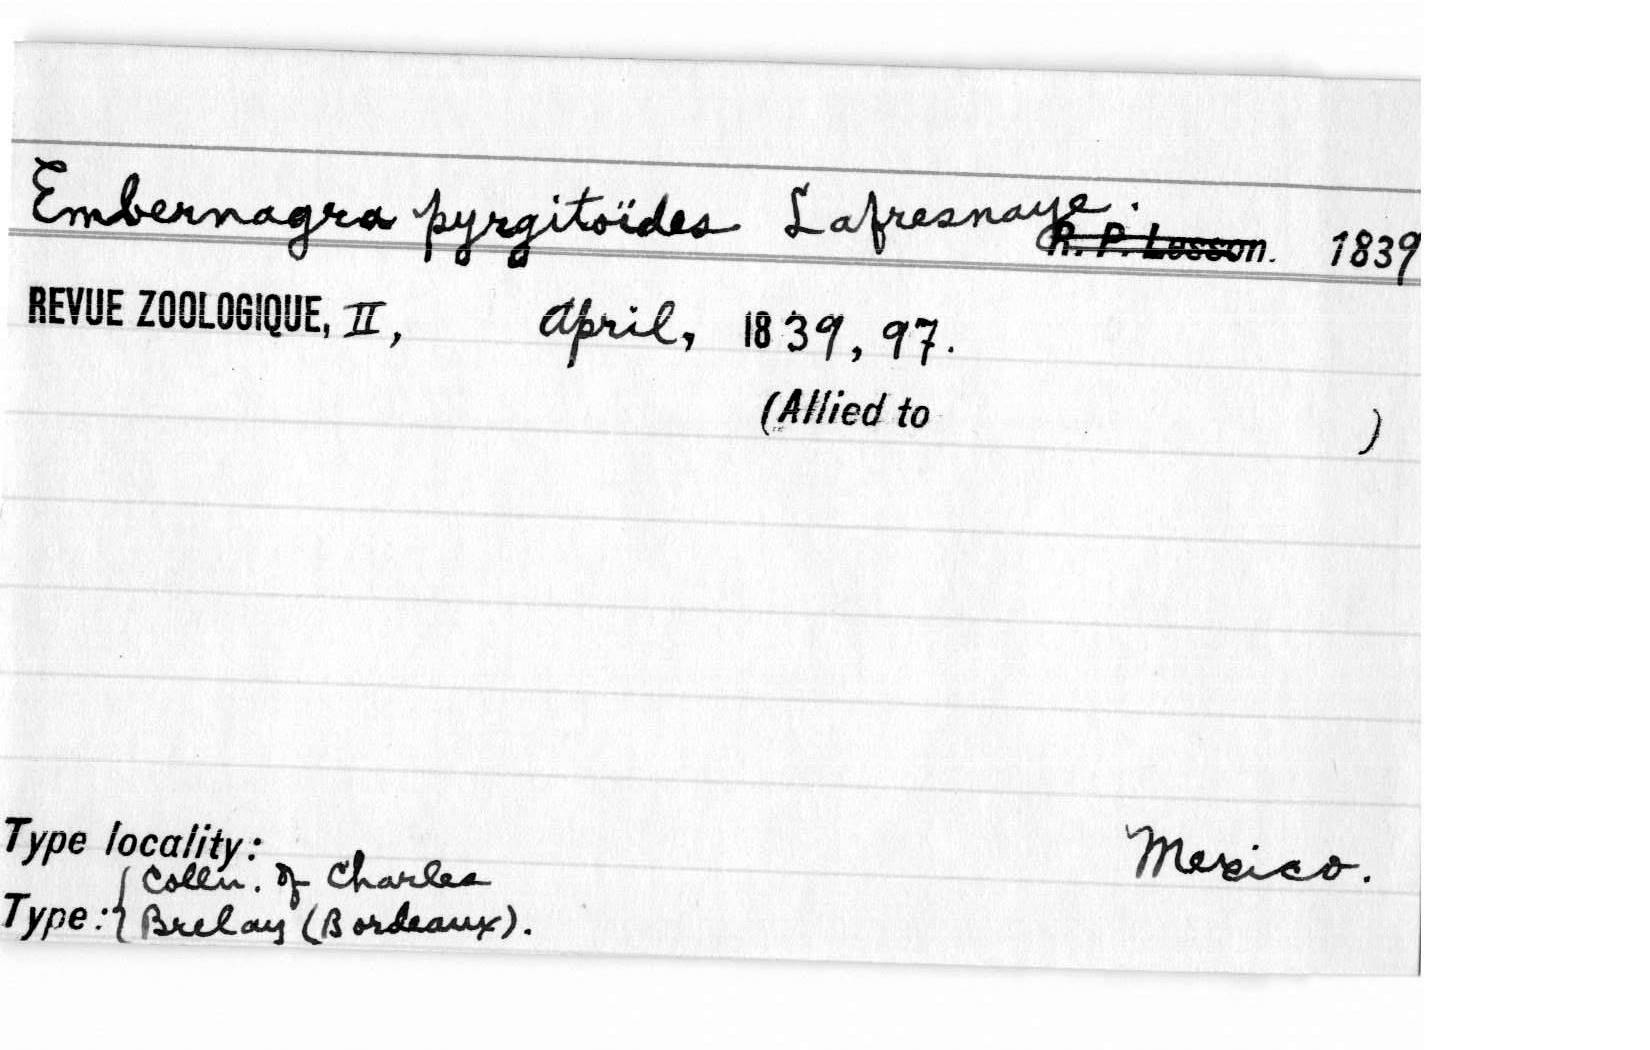 Embernagra pyrgitoïdes Lafresnaye.
R. P. Lesson. 1839
REVUE ZOOLOGIQUE, II, April, 1839, 97.
(Allied to )
Type locality: Mexico.
Type: { Colln. of Charles
Brelay (Bordeaux).